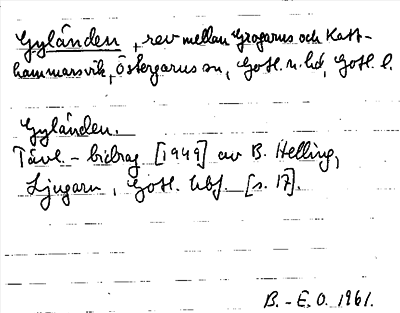 Gyländen, rev mellan Grogarns och Katt-
hammarsvik, Östergarns sn, Gotl. n. hd, Gotl. l.
Gyländen.
Tävl.-bidrag [1949] av B. Helling,
Ljugarn, Gotl. hbf. [s. 17].
B.-E.O. 1961.